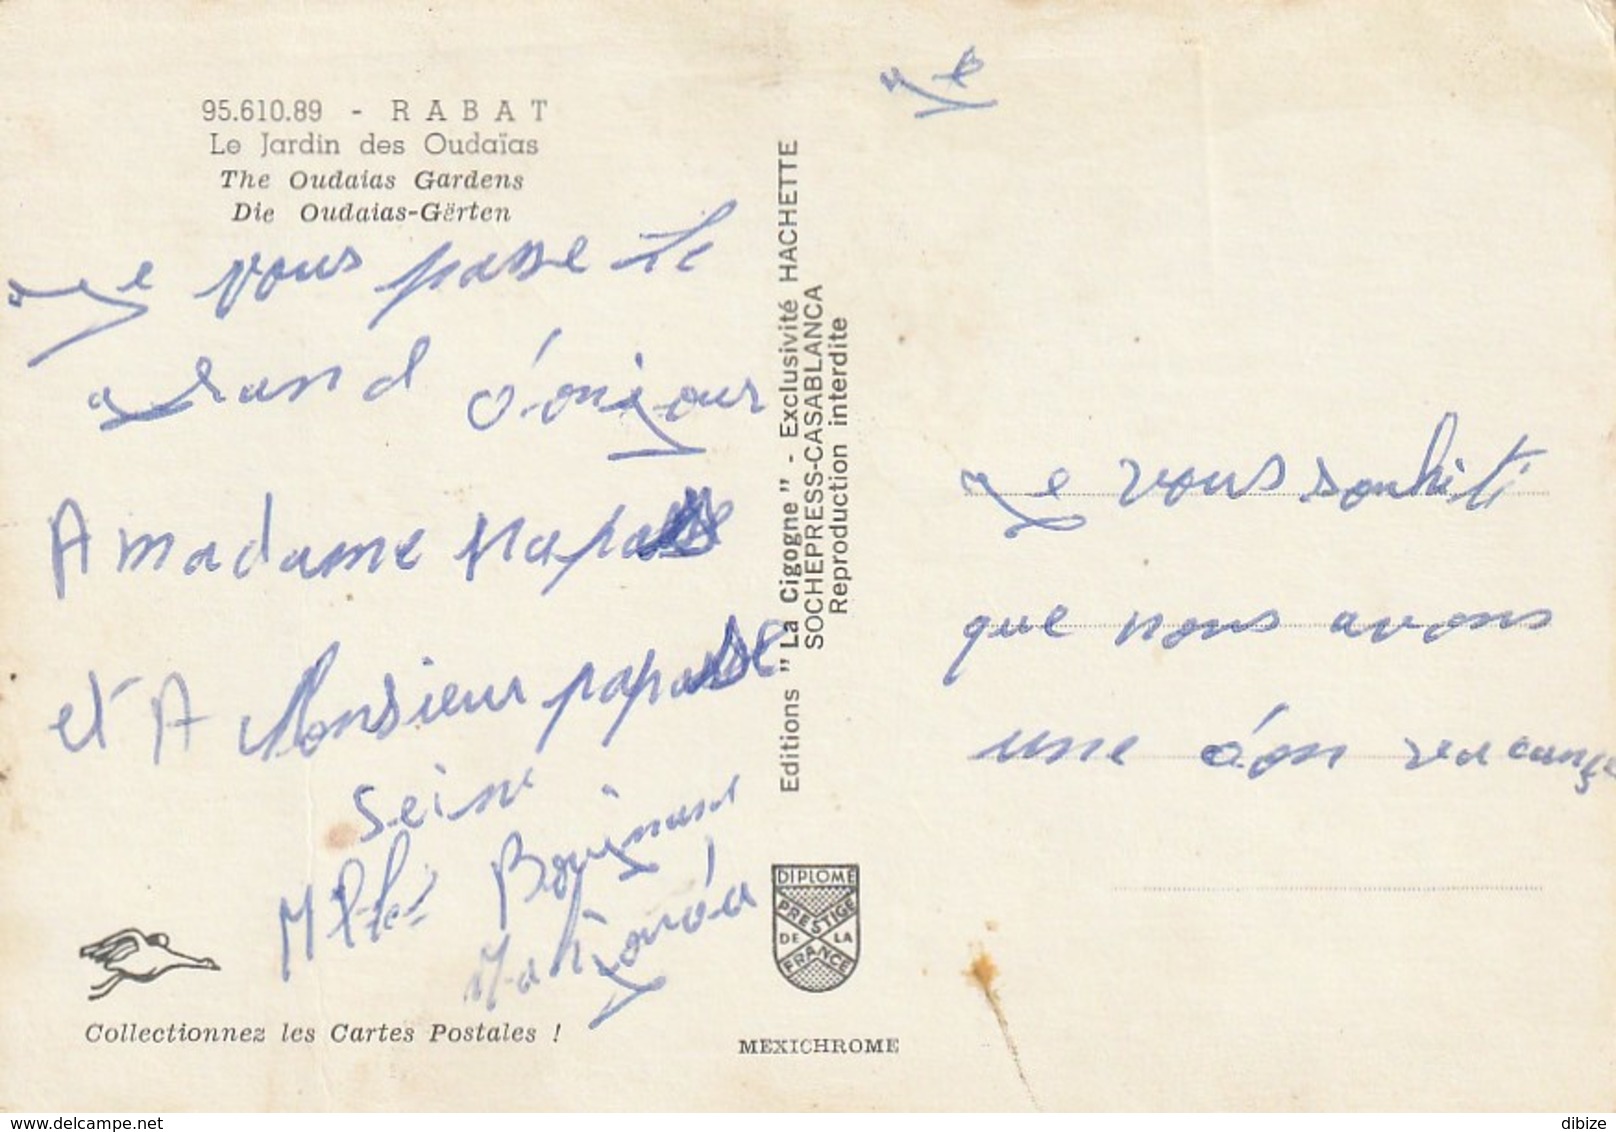 95.610.89 - RABAT
Le Jardin des Oudaïas
The Oudaias Gardens
Die Oudaias-Gërten
Je vous passe le
grand bonjour
A madame
et A Monsieur
Mlle
Collectionnez les Cartes Postales !
Editions "La Cigogne" - Exclusivité HACHETTE
SOCHEPRESS-CASABLANCA
Reproduction interdite
DIPLOME
PRESTIGE
DE LA
FRANCE
MEXICHROME
Je
Je vous souhiti
que nous avons
une bon vacance
www.delcampe.net
dibize